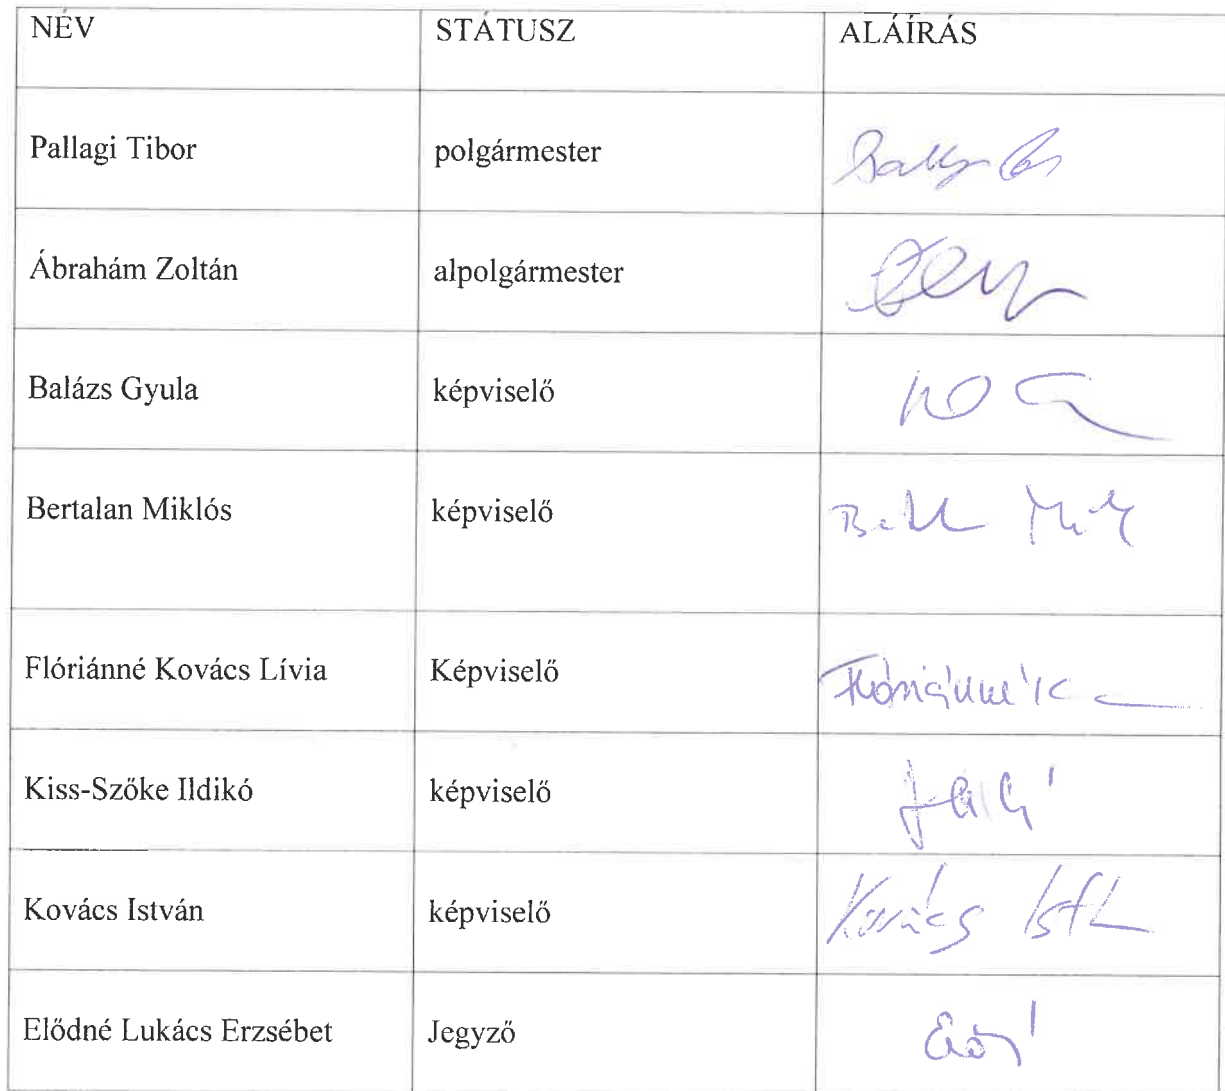 NÉV STÁTUSZ ALÁÍRÁS
Pallagi Tibor polgármester
Ábrahám Zoltán alpolgármester
Balázs Gyula képviselő
Bertalan Miklós képviselő
Flóriánné Kovács Lívia Képviselő Flóriánné K
Kiss-Szőke Ildikó képviselő
Kovács István képviselő Kovács
Elődné Lukács Erzsébet Jegyző